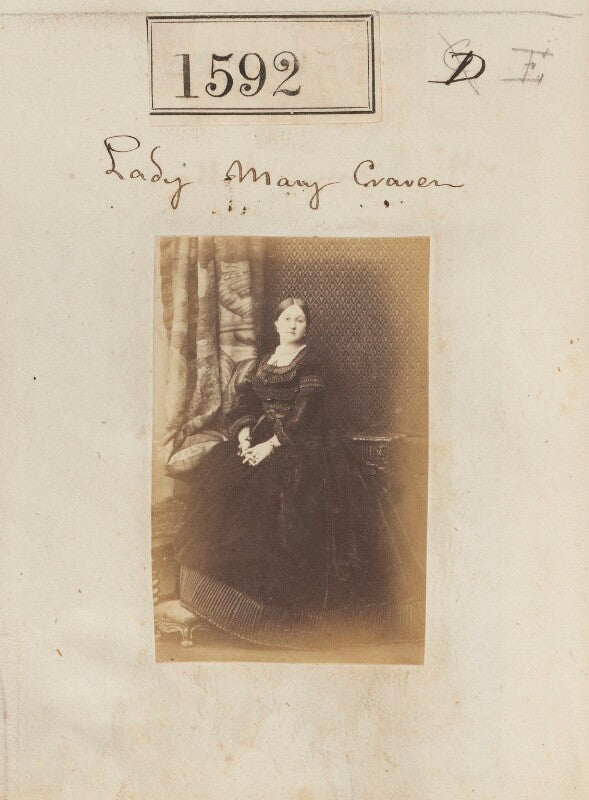 1592
D E
Lady Mary Craven